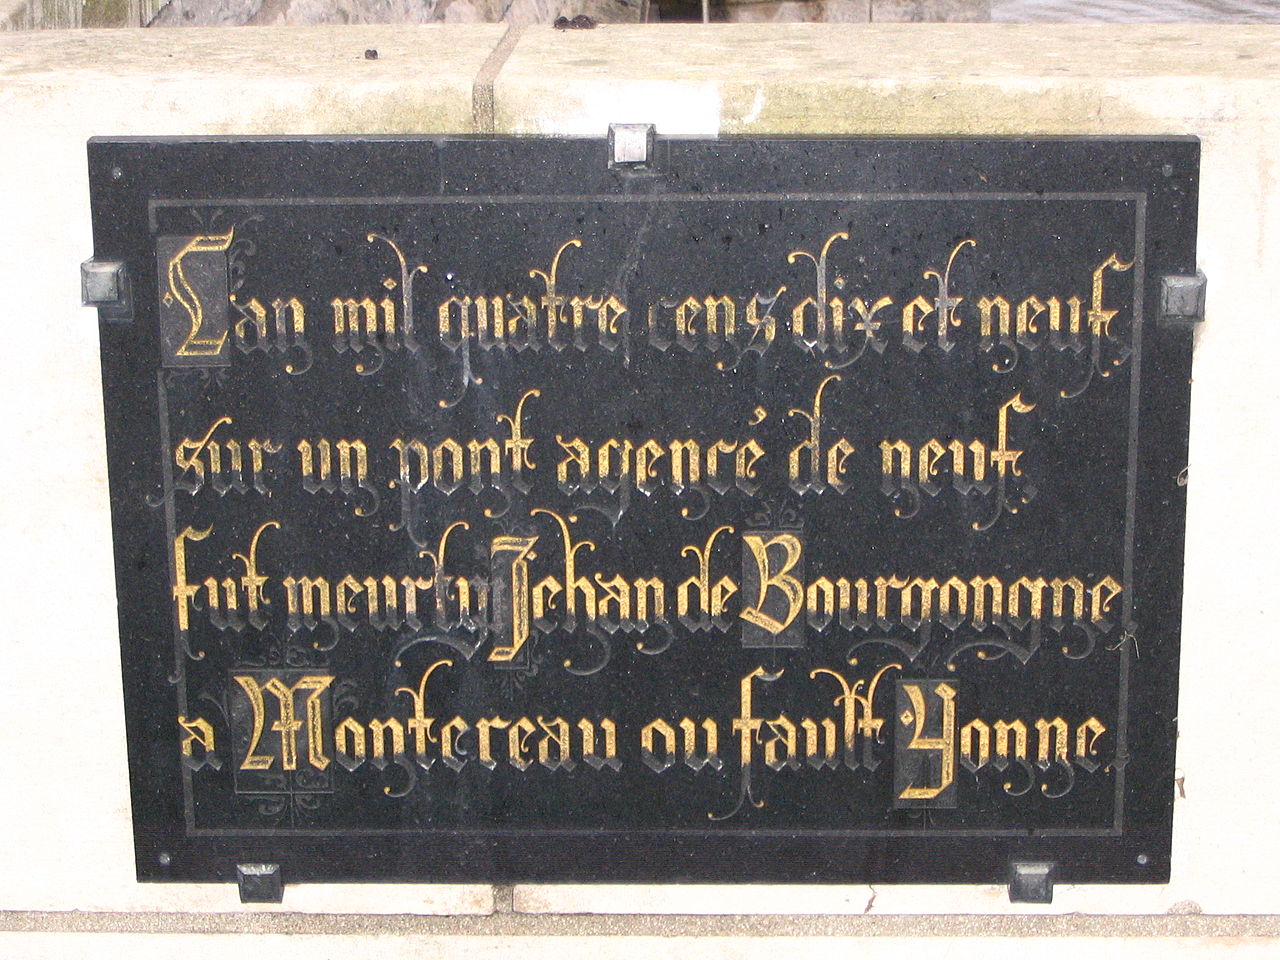 Lan mil quatre cens dix et neuf
sur un pont agencé de neuf
fut meurtry Jehan de Bourgongne
a Montereau ou fault Yonne